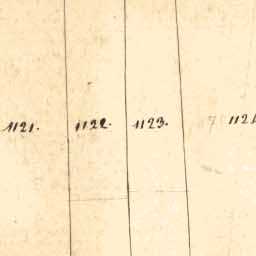 1121. 1122. 1123.